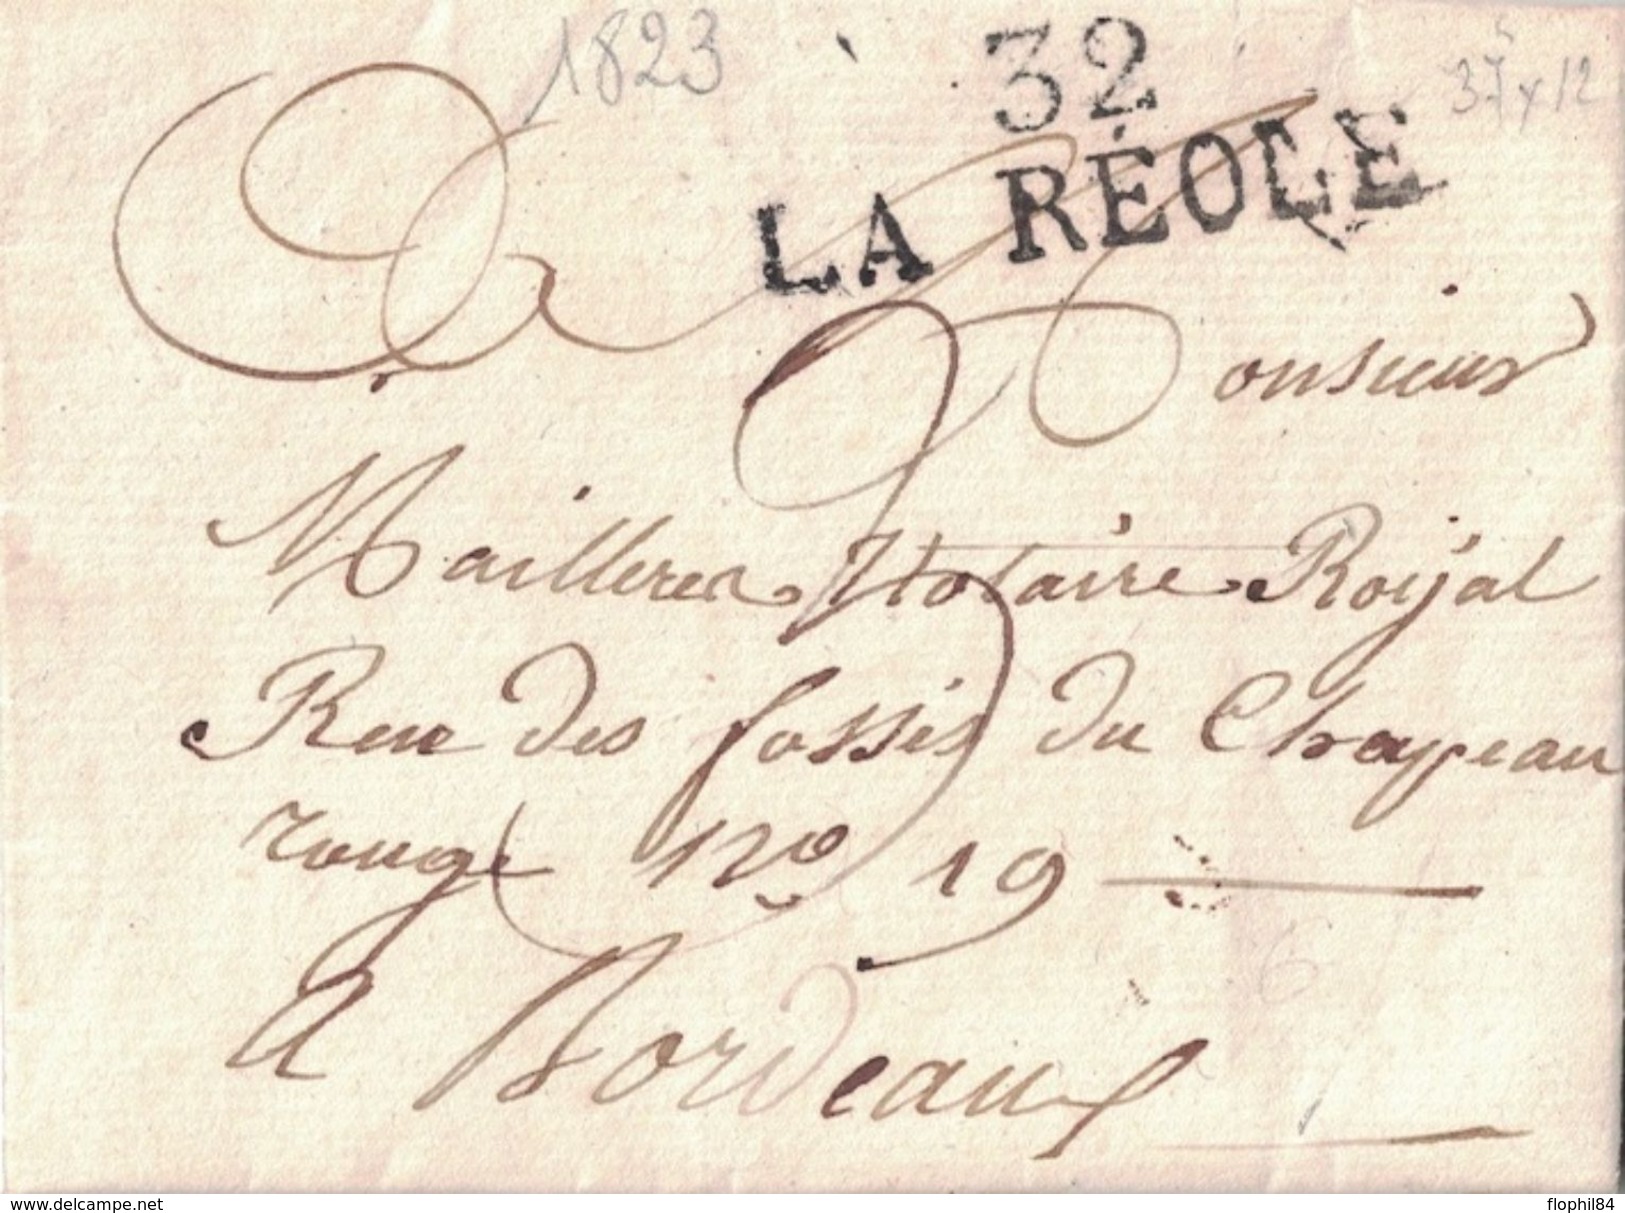 1823
32
37 x 12
LA RÉOLE
A Monsieur
Mailleres Notaire Royal
Rue des fossés du Chapeau
rouge No 19
A Bordeaux
www.delcampe.net
flophil84